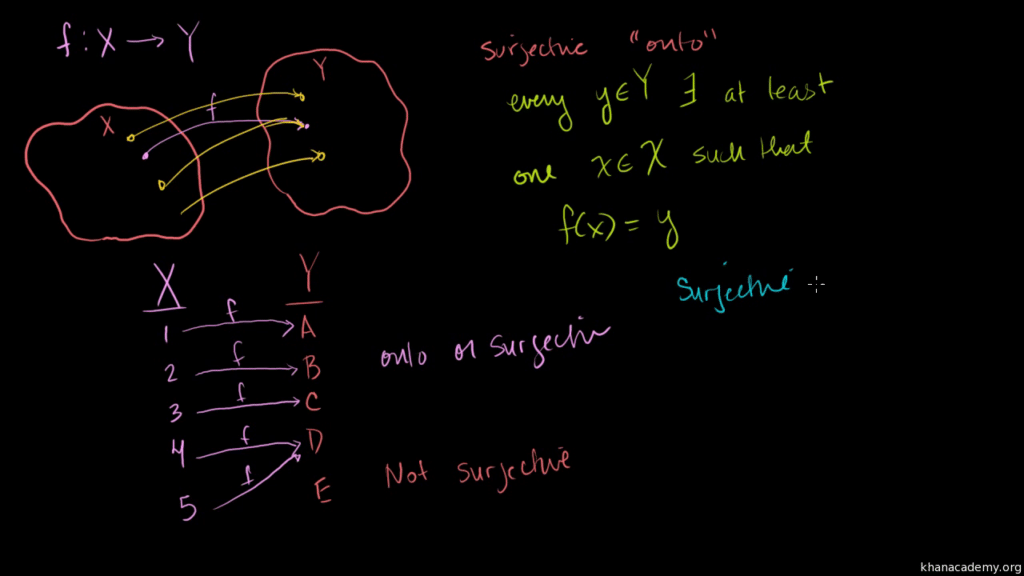 f : X → Y
Surjective "onto"
every y ∈ Y ∃ at least
one x ∈ X such that
f(x) = y
Surjective
X
Y
f
X Y
1 f A
2 f B
3 f C
4 f D
5 f E
onto or surjective
Not surjective
khanacademy.org